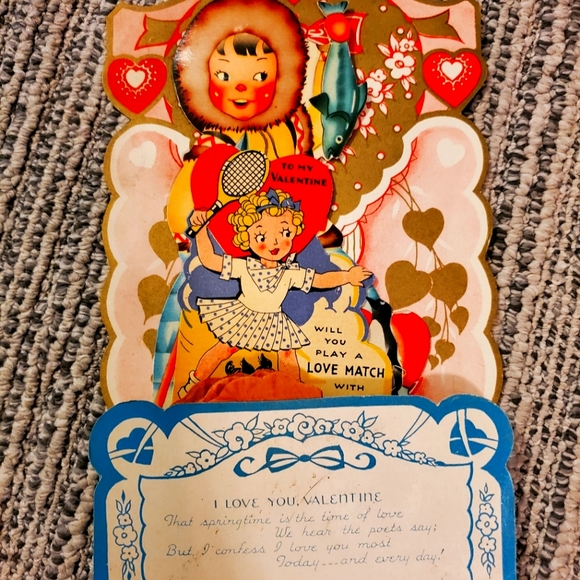 TO MY
VALENTINE
WILL
YOU
PLAY A
LOVE MATCH
WITH
I LOVE YOU, VALENTINE
That springtime is the time of love
We hear the poets say;
But, I confess, I love you most
Today...and every day!